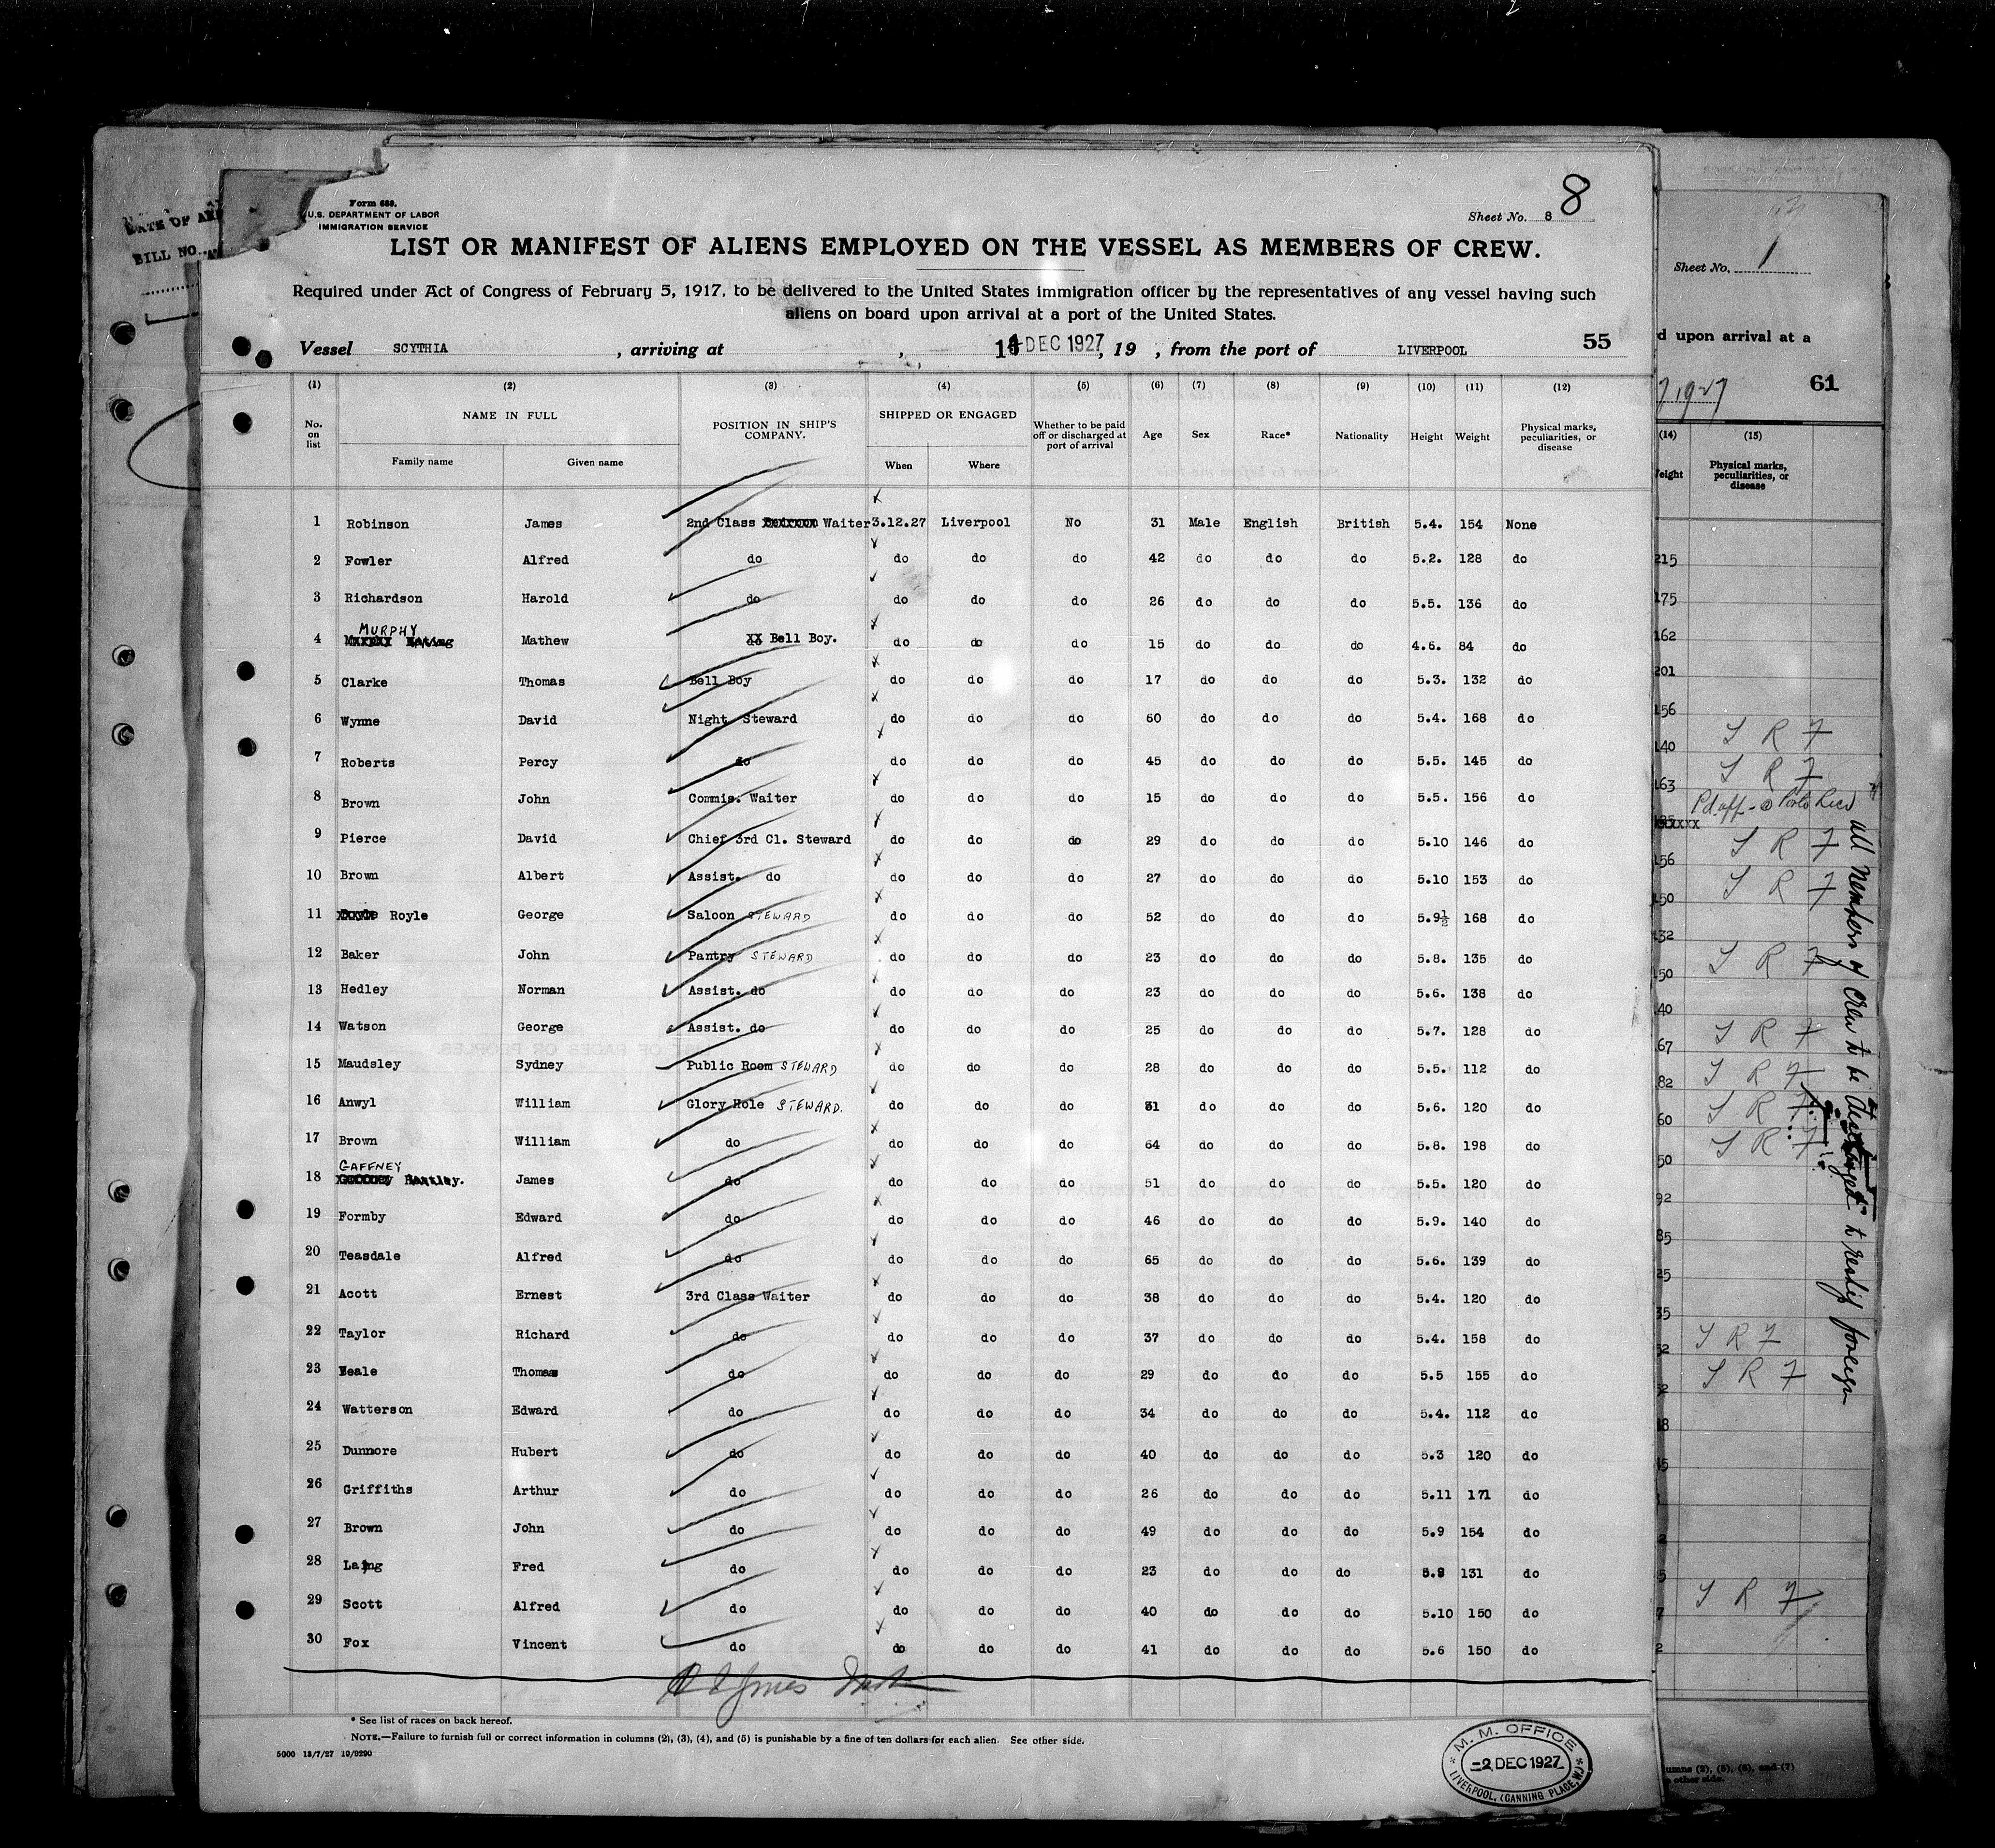 Form 689.
U.S. DEPARTMENT OF LABOR
IMMIGRATION SERVICE
Sheet No. 8 8
LIST OR MANIFEST OF ALIENS EMPLOYED ON THE VESSEL AS MEMBERS OF CREW.
Required under Act of Congress of February 5, 1917, to be delivered to the United States immigration officer by the representatives of any vessel having such
aliens on board upon arrival at a port of the United States.
Vessel SCYTHIA, arriving at , DEC 1927, 19 , from the port of LIVERPOOL 55
(1) (2) (3) (4) (5) (6) (7) (8) (9) (10) (11) (12)
No. on list NAME IN FULL POSITION IN SHIP'S COMPANY. SHIPPED OR ENGAGED Whether to be paid off or discharged at port of arrival Age Sex Race* Nationality Height Weight Physical marks, peculiarities, or disease
Family name Given name When Where
1 Robinson James 2nd Class Waiter 3.12.27 Liverpool No 31 Male English British 5.4. 154 None
2 Fowler Alfred do do do do 42 do do do 5.2. 128 do
3 Richardson Harold do do do do 26 do do do 5.5. 136 do
4 MURPHY Mathew XX Bell Boy. do do do 15 do do do 4.6. 84 do
5 Clarke Thomas Bell Boy do do do 17 do do do 5.3. 132 do
6 Wynne David Night Steward do do do 60 do do do 5.4. 168 do
7 Roberts Percy do do do do 45 do do do 5.5. 145 do
8 Brown John Commis. Waiter do do do 15 do do do 5.5. 156 do
9 Pierce David Chief 3rd Cl. Steward do do do 29 do do do 5.10 146 do
10 Brown Albert Assist. do do do do 27 do do do 5.10 153 do
11 Royle George Saloon STEWARD do do do 52 do do do 5.9½ 168 do
12 Baker John Pantry STEWARD do do do 23 do do do 5.8. 135 do
13 Hedley Norman Assist. do do do do 23 do do do 5.6. 138 do
14 Watson George Assist. do do do do 25 do do do 5.7. 128 do
15 Maudsley Sydney Public Room STEWARD do do do 28 do do do 5.5. 112 do
16 Anwyl William Glory Hole STEWARD. do do do 31 do do do 5.6. 120 do
17 Brown William do do do do 64 do do do 5.8. 198 do
18 GAFFNEY James do do do do 51 do do do 5.5. 120 do
19 Formby Edward do do do do 46 do do do 5.9. 140 do
20 Teasdale Alfred do do do do 65 do do do 5.6. 139 do
21 Acott Ernest 3rd Class Waiter do do do 38 do do do 5.4. 120 do
22 Taylor Richard do do do do 37 do do do 5.4. 158 do
23 Neale Thomas do do do do 29 do do do 5.5 155 do
24 Watterson Edward do do do do 34 do do do 5.4. 112 do
25 Dunmore Hubert do do do do 40 do do do 5.3 120 do
26 Griffiths Arthur do do do do 26 do do do 5.11 171 do
27 Brown John do do do do 49 do do do 5.9 154 do
28 Laing Fred do do do do 23 do do do 5.8 131 do
29 Scott Alfred do do do do 40 do do do 5.10 150 do
30 Fox Vincent do do do do 41 do do do 5.6 150 do
* See list of races on back hereof.
NOTE.—Failure to furnish full or correct information in columns (2), (3), (4), and (5) is punishable by a fine of ten dollars for each alien. See other side.
5000 13/7/27 19/9290
M. M. OFFICE
2 DEC 1927
LIVERPOOL, (CANNING PLACE, W.)
BILL NO.
Sheet No. 1
d upon arrival at a
61
(14) (15)
Physical marks, peculiarities, or disease
215
175
162
201
156
140
163
Pd off - @ Porto Rico
156
150
132
all members of crew to be
to reship foreign